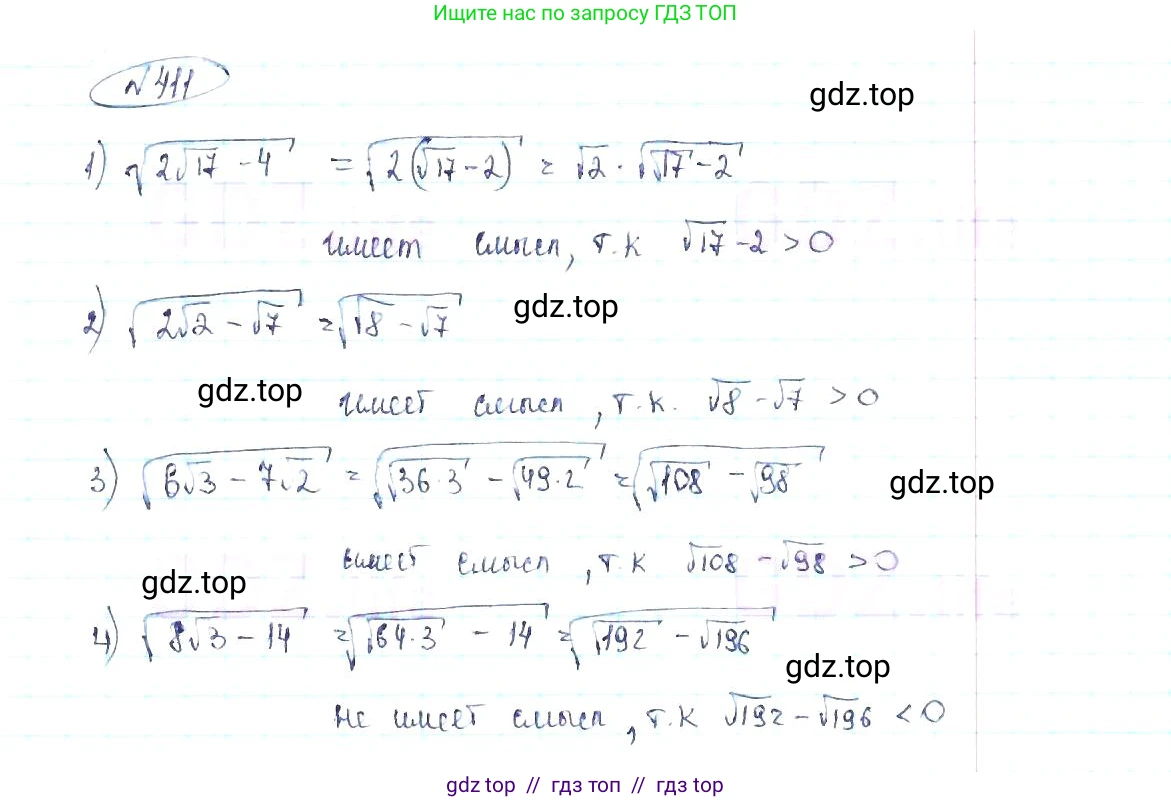 Ищите нас по запросу ГДЗ ТОП
№ 411
gdz.top
1) √(2√17 - 4) = √(2(√17 - 2)) = √2 · √(√17 - 2)
имеет смысл, т.к √17 - 2 > 0
2) √(2√2 - √7) = √(√8 - √7)
gdz.top
gdz.top
имеет смысл, т.к. √8 - √7 > 0
3) √(6√3 - 7√2) = √(√36·3 - √49·2) = √(√108 - √98)
gdz.top
имеет смысл, т.к √108 - √98 > 0
gdz.top
4) √(8√3 - 14) = √(√64·3 - 14) = √(√192 - √196)
gdz.top
не имеет смысл, т.к √192 - √196 < 0
gdz top // гдз топ // gdz top